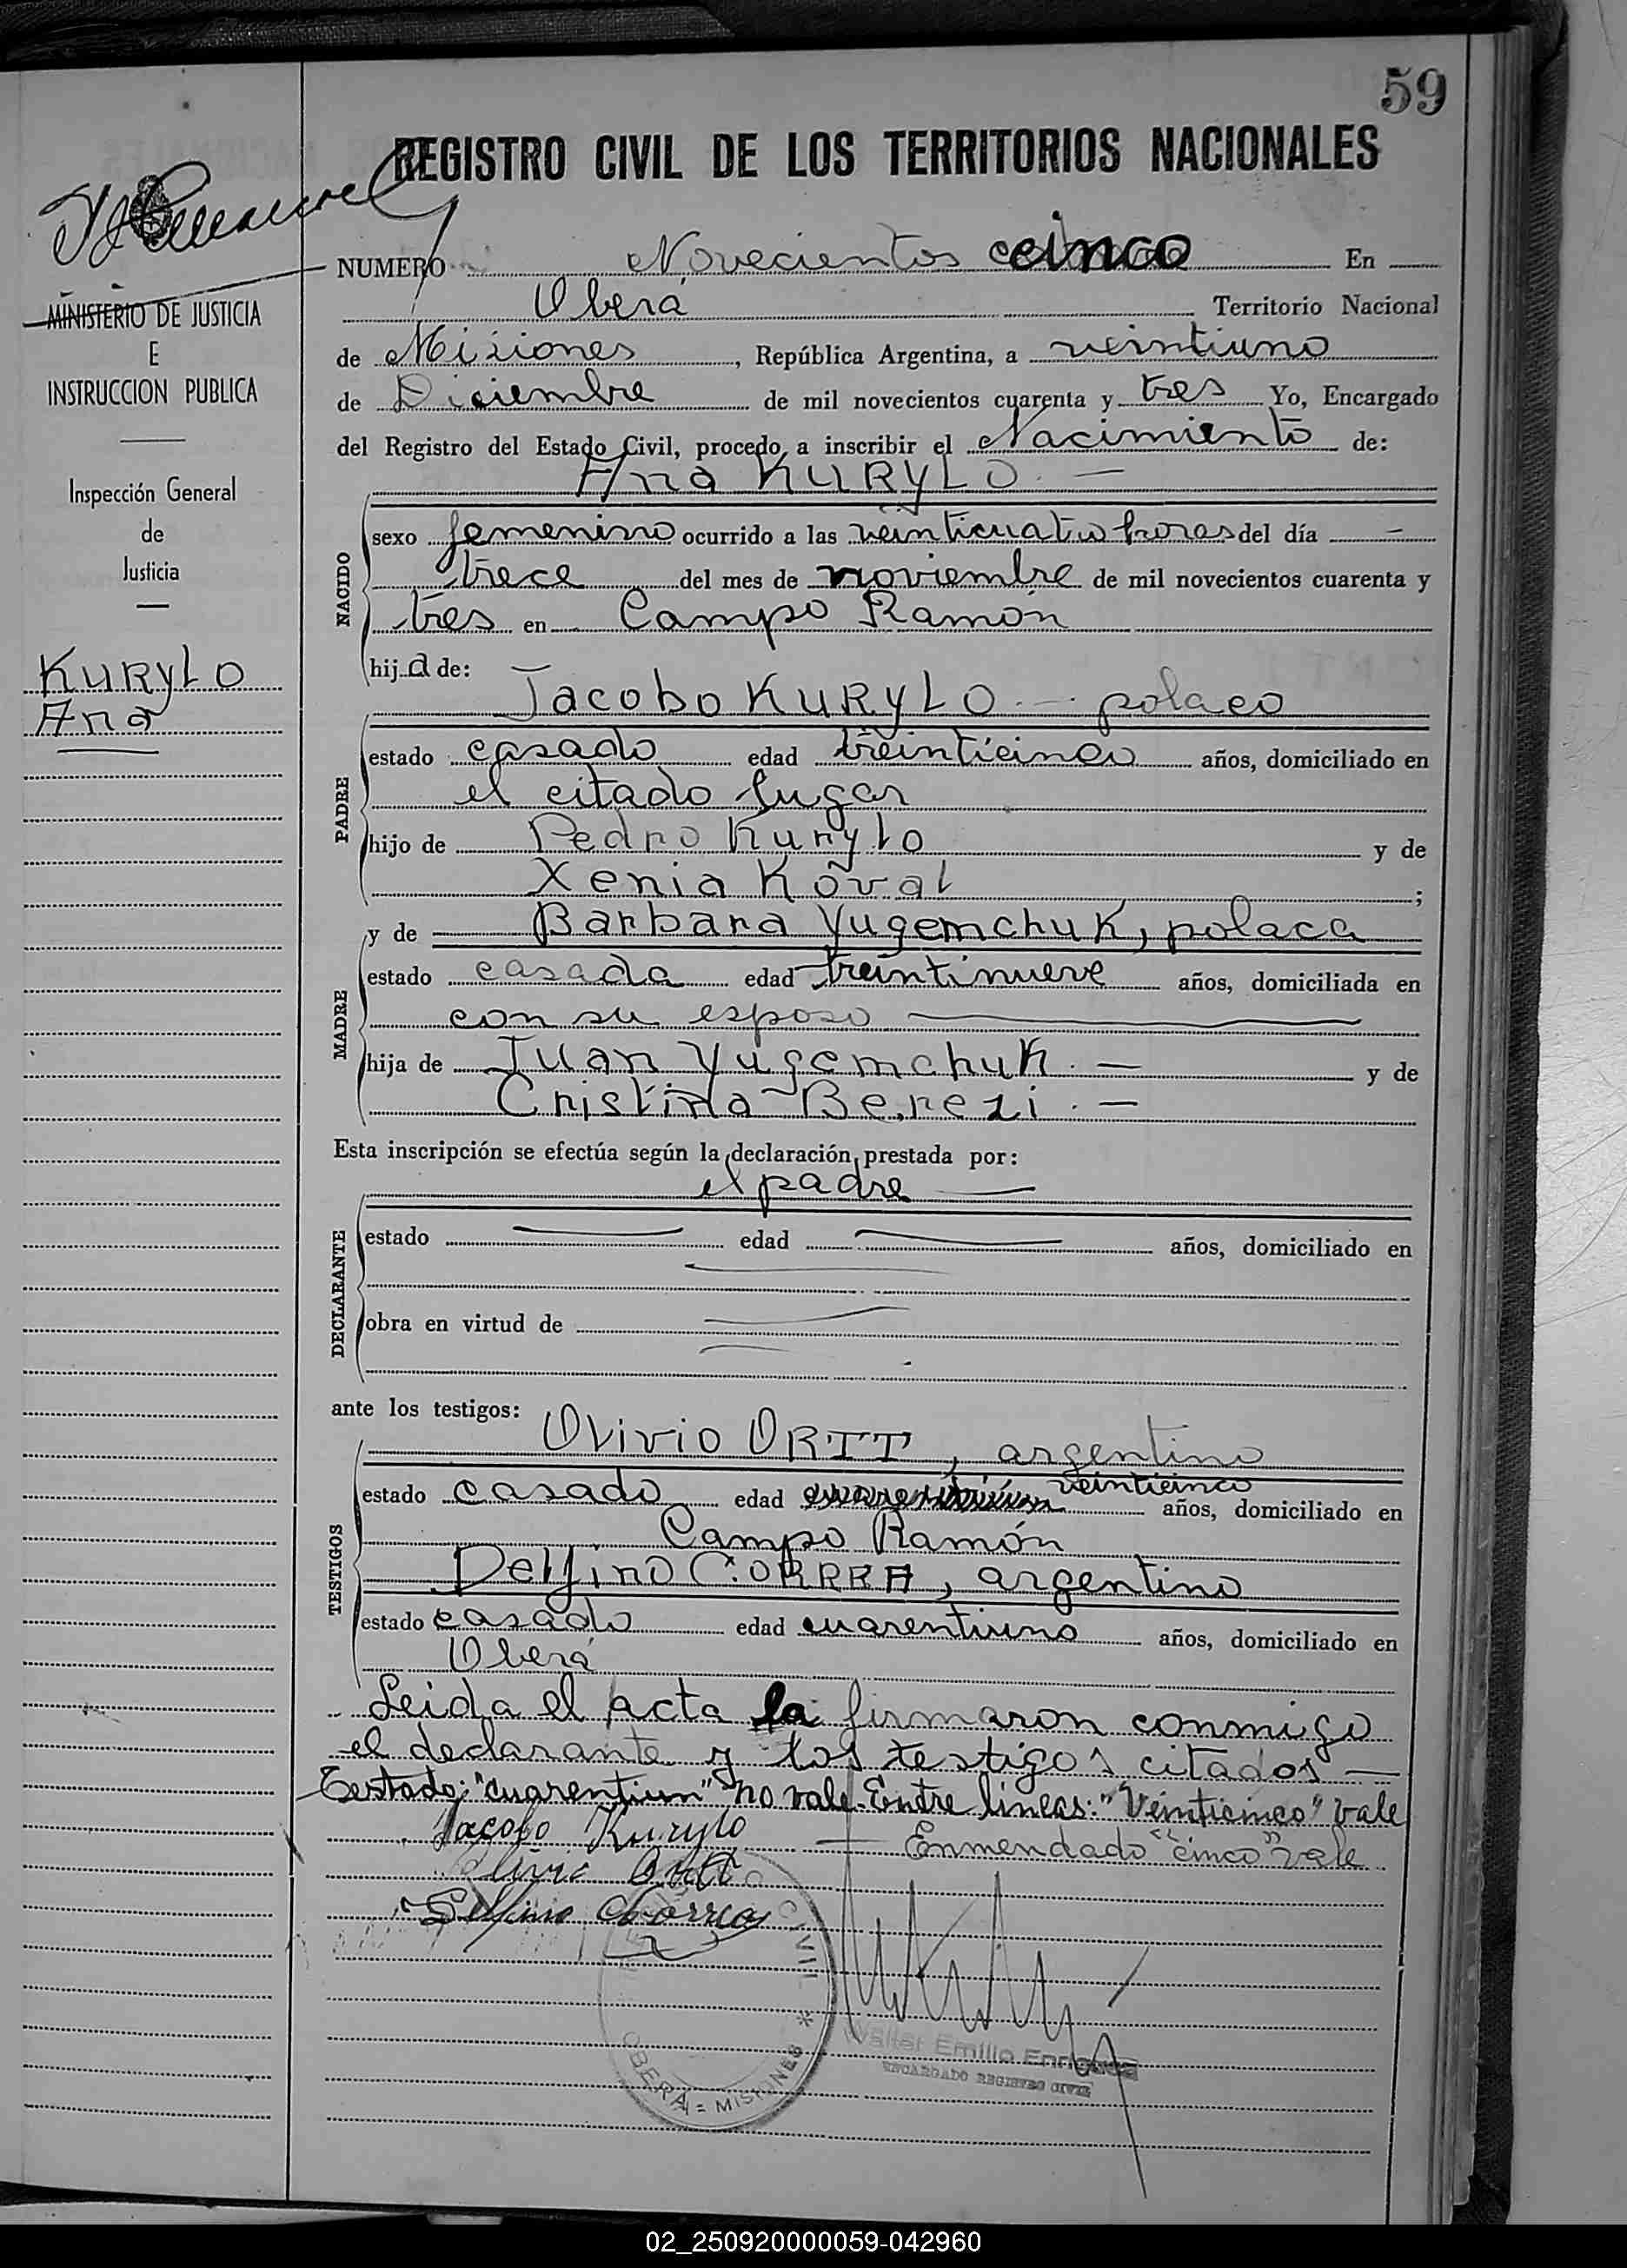 59
REGISTRO CIVIL DE LOS TERRITORIOS NACIONALES
NUMERO Novecientos cinco En
Oberá Territorio Nacional
de Misiones, República Argentina, a veintiuno
de Diciembre de mil novecientos cuarenta y tres Yo, Encargado
del Registro del Estado Civil, procedo a inscribir el Nacimiento de:
Ana KURYLO. —
NACIDO
sexo femenino ocurrido a las veinticuatro horas del día —
trece del mes de noviembre de mil novecientos cuarenta y
tres en Campo Ramón
hija de:
Jacobo KURYLO. — polaco
PADRE
estado casado edad treinticinco años, domiciliado en
el citado lugar
hijo de Pedro Kurylo y de
Xenia Koval ;
y de Barbara Yugemchuk, polaca
MADRE
estado casada edad treintinueve años, domiciliada en
con su esposo —
hija de Juan Yugemchuk. — y de
Cristina Berezi. —
Esta inscripción se efectúa según la declaración prestada por:
el padre —
DECLARANTE
estado — edad — años, domiciliado en
obra en virtud de —
ante los testigos:
Olivio ORTT, argentino
TESTIGOS
veinticinco
estado casado edad años, domiciliado en
Campo Ramón
Delfino CORREA, argentino
estado casado edad cuarentiuno años, domiciliado en
Oberá
Leida el acta la firmaron conmigo
el declarante y los testigos citados —
Testado: "cuarentiun" no vale. Entre lineas: "Veinticinco" vale
Jacobo Kurylo — Enmendado "cinco" vale
Olivio Ortt
Delfino Correa
CIVIL * OBERÁ = MISIONES
Walter Emilio Enriquez
ENCARGADO REGISTRO CIVIL
MINISTERIO DE JUSTICIA
E
INSTRUCCION PUBLICA
Inspección General
de
Justicia
KURYLO
Ana
02_250920000059-042960